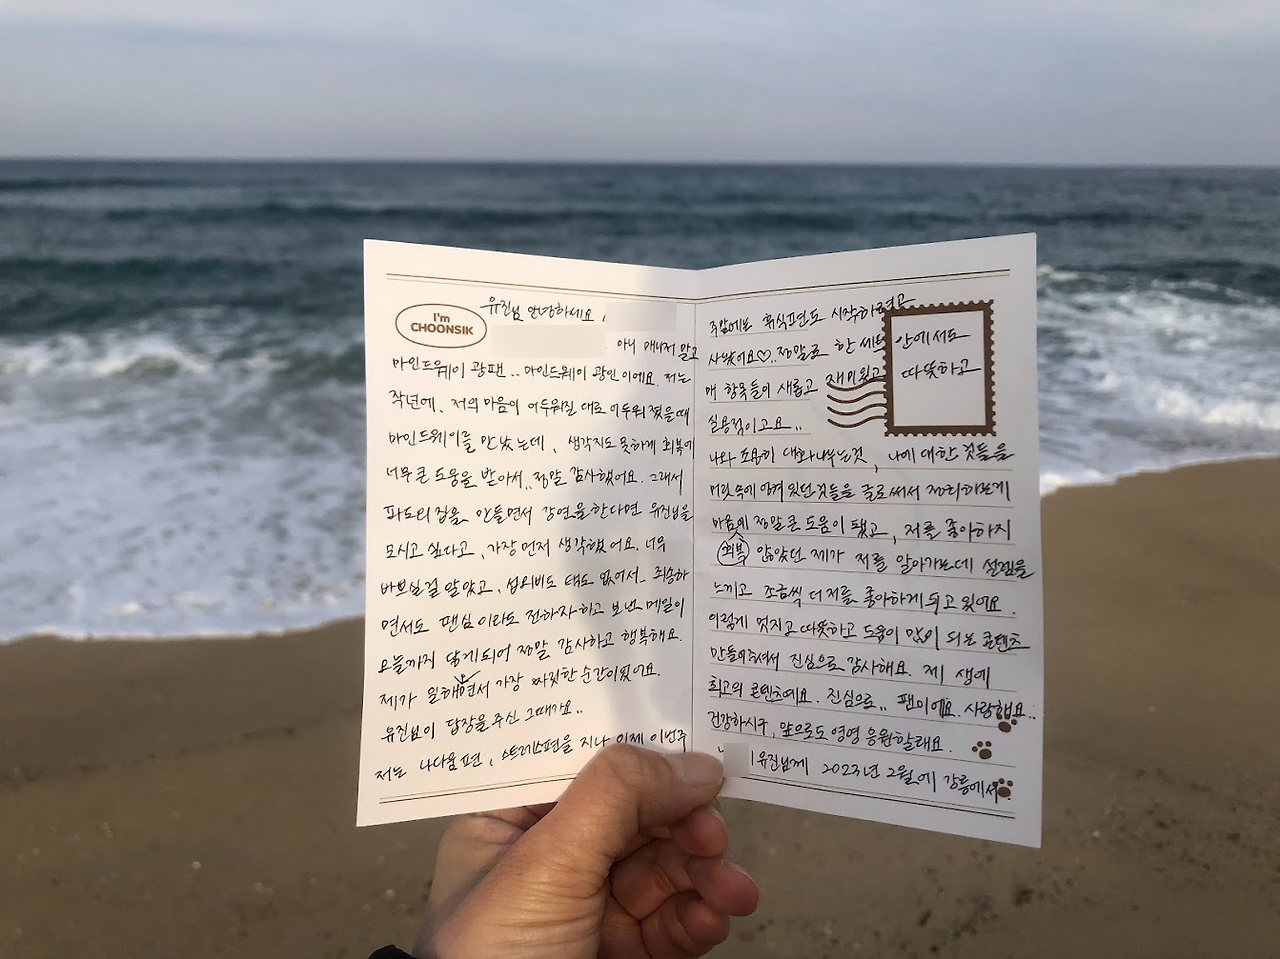 I'm
CHOONSIK
유진님 안녕하세요,
아니 매니저 말고
마인드웨이 광팬.. 마인드웨이 광인이에요. 저는
작년에, 저의 마음이 어두워질 대로 어두워졌을때
마인드웨이를 만났는데, 생각지도 못하게 회복에
너무 큰 도움을 받아서.. 정말 감사했어요. 그래서
파도의 집을 만들면서 강연을 한다면 유진님을
모시고 싶다고, 가장 먼저 생각했어요. 너무
바쁘실걸 알았고, 섭외비도 턱도 없어서.. 죄송하
면서도 팬심이라도 전하자 하고 보낸 메일이
오늘까지 닿게되어 정말 감사하고 행복해요.
제가 일하면서 가장 짜릿한 순간이었어요.
유진님이 답장을 주신 그때가요..
저는 나다움편, 스트레스편을 지나 이제 이번주
주말에는 휴식편도 시작하려고
사놨어요♡.. 정말로 한 세트 안에서도
매 항목들이 새롭고 재미있고 따뜻하고
실용적이고요..
나와 조용히 대화나누는것, 나에 대한 것들을
머릿속에 엉켜있던것들을 글로 써서 정리하는게
마음에 정말 큰 도움이 됐고, 저를 좋아하지
회복 않았던 제가 저를 알아가는데 설렘을
느끼고 조금씩 더 저를 좋아하게 되고 있어요.
이렇게 멋지고 따뜻하고 도움이 많이 되는 콘텐츠
만들어주셔서 진심으로 감사해요. 제 생에
최고의 콘텐츠예요. 진심으로.. 팬이에요. 사랑해요..
건강하시구, 앞으로도 영영 응원할래요.
유진님께 2023년 2월에 강릉에서